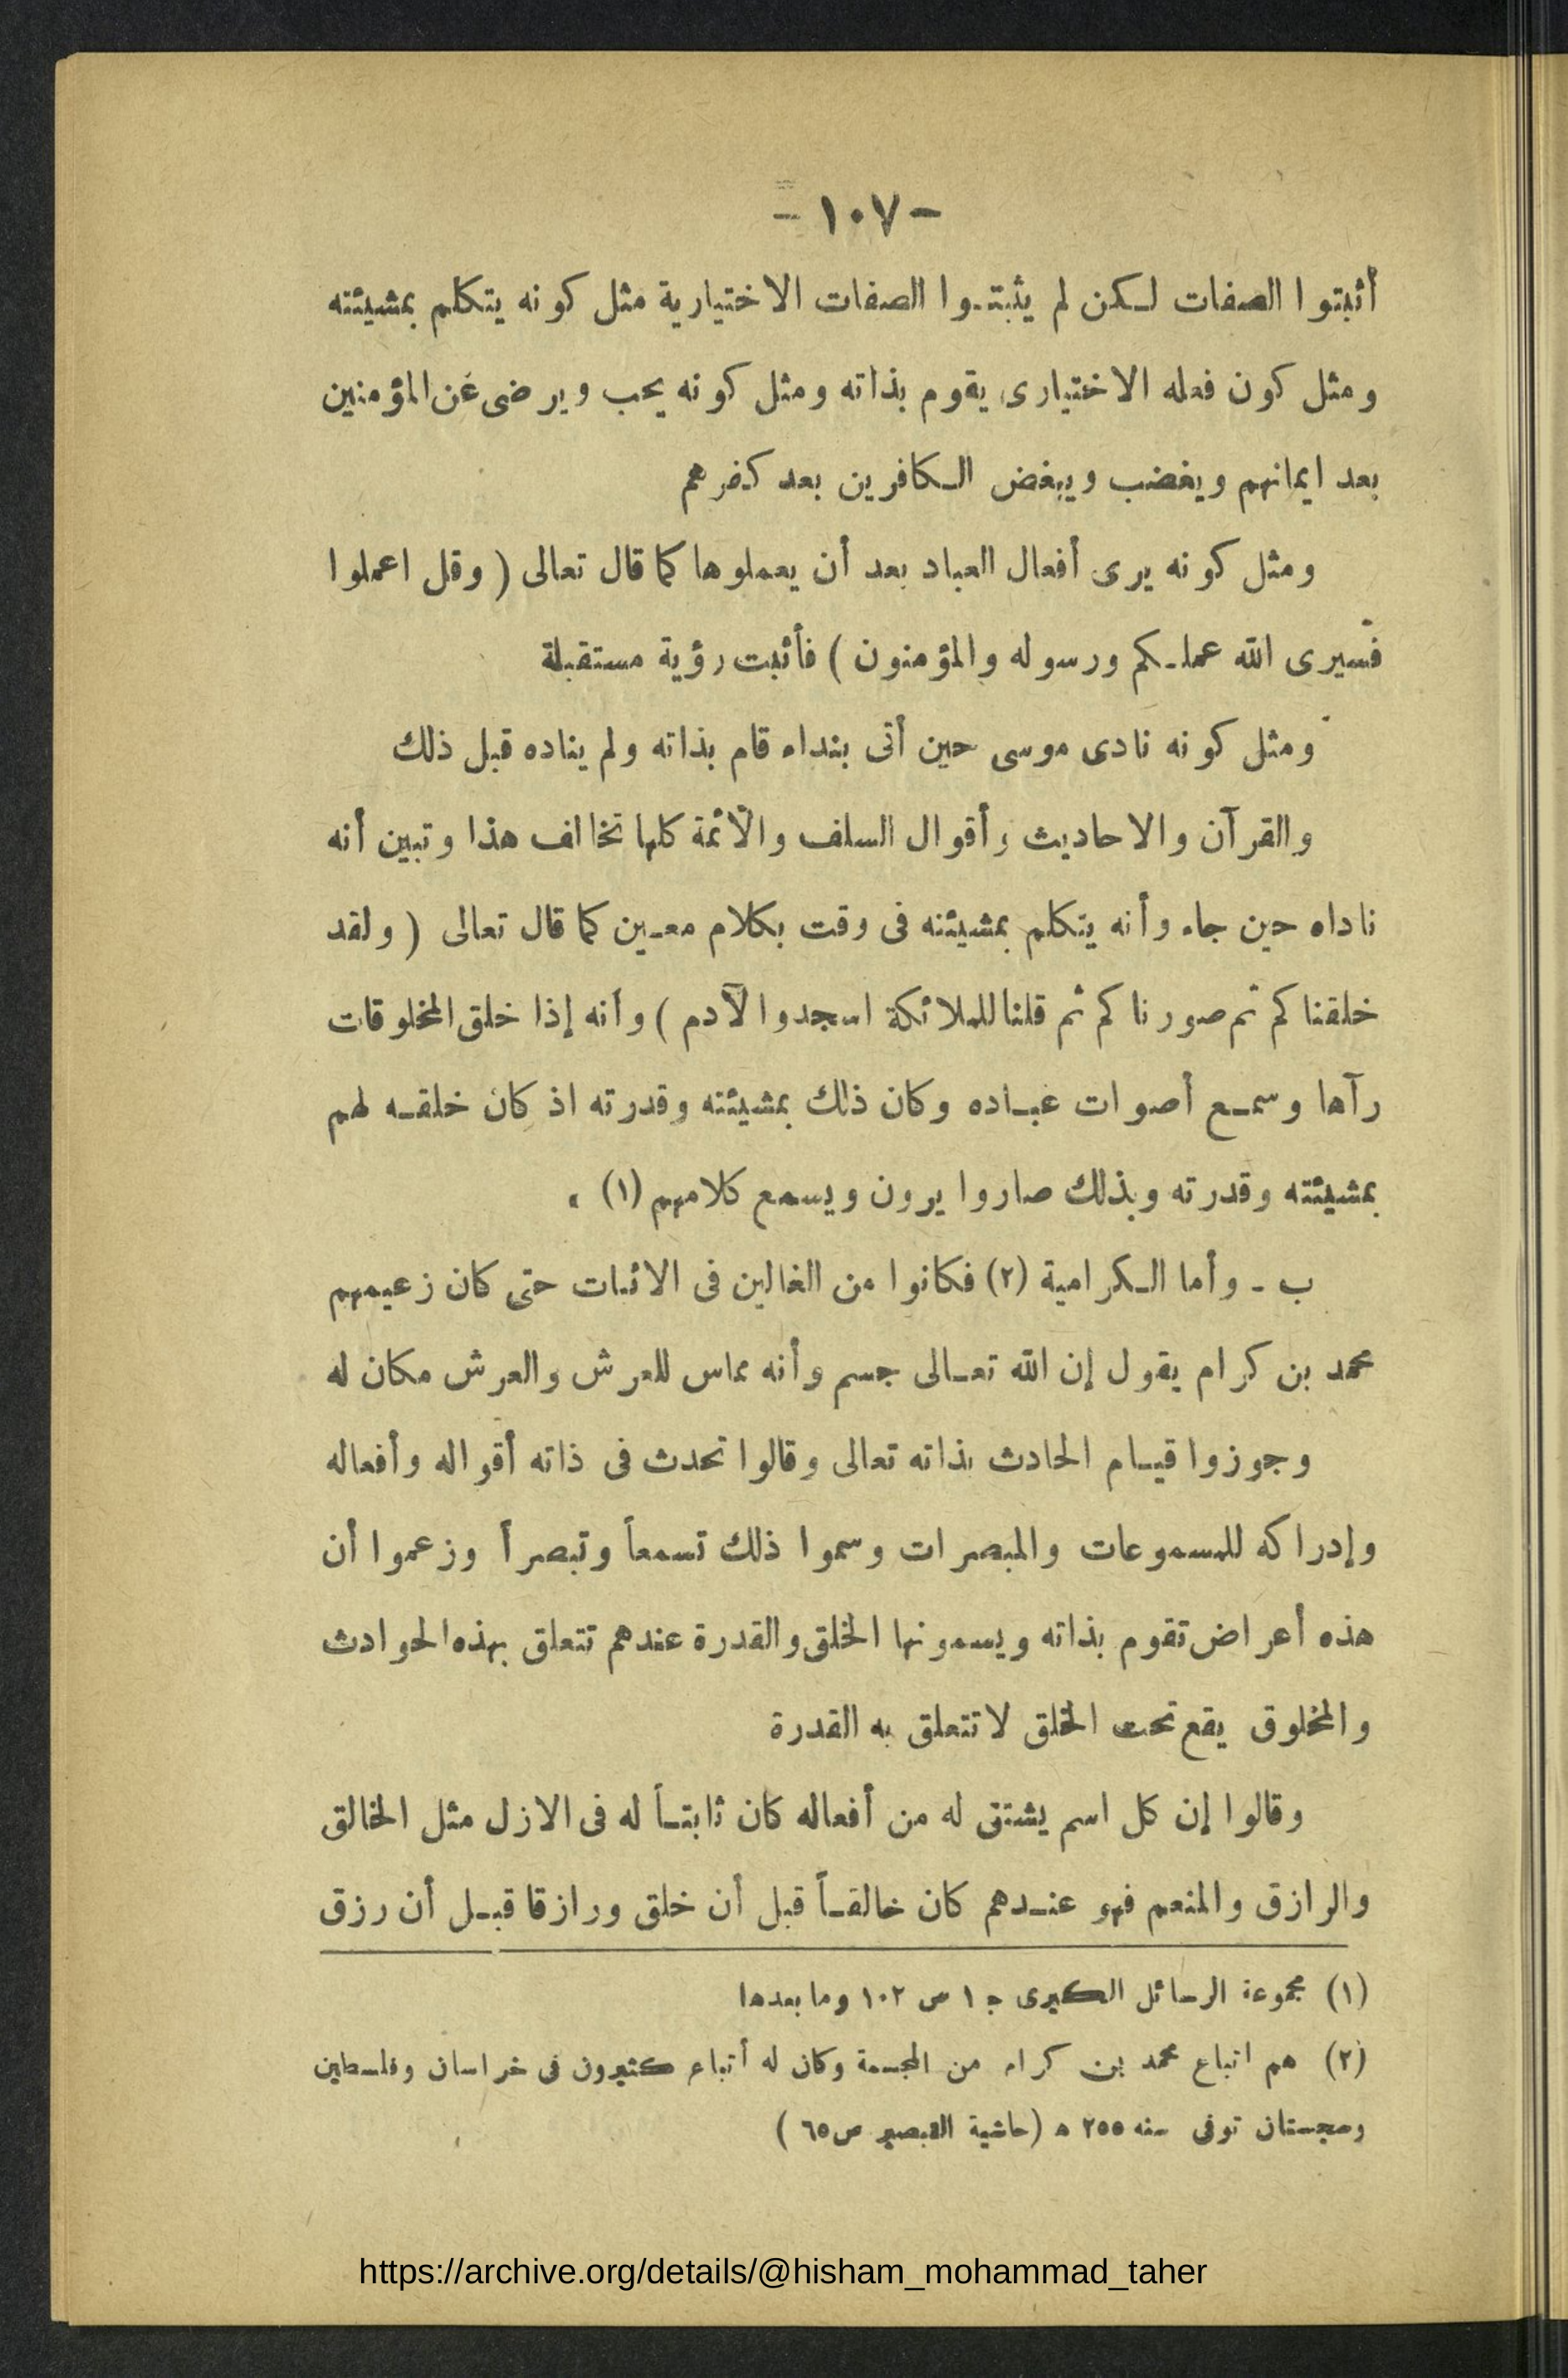 - ١٠٧ -
أثبتوا الصفات لكن لم يثبتوا الصفات الاختيارية مثل كونه يتكلم بمشيئته
ومثل كون فعله الاختيارى يقوم بذاته ومثل كونه يحب ويرضى عن المؤمنين
بعد ايمانهم ويغضب ويبغض الكافرين بعد كفرهم
ومثل كونه يرى أفعال العباد بعد أن يعملوها كما قال تعالى ( وقل اعملوا
فسيرى الله عملكم ورسوله والمؤمنون ) فأثبت رؤية مستقبلة
ومثل كونه نادى موسى حين أتى بنداء قام بذاته ولم يناده قبل ذلك
والقرآن والاحاديث وأقوال السلف والأئمة كلها تخالف هذا وتبين أنه
ناداه حين جاء وأنه يتكلم بمشيئته فى وقت بكلام معين كما قال تعالى ( ولقد
خلقناكم ثم صورناكم ثم قلنا للملائكة اسجدوا لآدم ) وأنه إذا خلق المخلوقات
رآها وسمع أصوات عباده وكان ذلك بمشيئته وقدرته اذ كان خلقه لهم
بمشيئته وقدرته وبذلك صاروا يرون ويسمع كلامهم (١) .
ب - وأما الكرامية (٢) فكانوا من الغالين فى الاثبات حتى كان زعيمهم
محمد بن كرام يقول إن الله تعالى جسم وأنه مماس للعرش والعرش مكان له
وجوزوا قيام الحادث بذاته تعالى وقالوا تحدث فى ذاته أقواله وأفعاله
وإدراكه للمسموعات والمبصرات وسموا ذلك تسمعاً وتبصراً وزعموا أن
هذه أعراض تقوم بذاته ويسمونها الخلق والقدرة عندهم تتعلق بهذه الحوادث
والمخلوق يقع تحت الخلق لا تتعلق به القدرة
وقالوا إن كل اسم يشتق له من أفعاله كان ثابتاً له فى الازل مثل الخالق
والرازق والمنعم فهو عندهم كان خالقاً قبل أن خلق ورازقا قبل أن رزق
(١) مجموعة الرسائل الكبرى ج ١ ص ١٠٢ وما بعدها
(٢) هم اتباع محمد بن كرام من المجسمة وكان له أتباع كثيرون فى خراسان وفلسطين
وسجستان توفى سنه ٢٥٥ ه (حاشية التبصير ص ٦٥ )
https://archive.org/details/@hisham_mohammad_taher